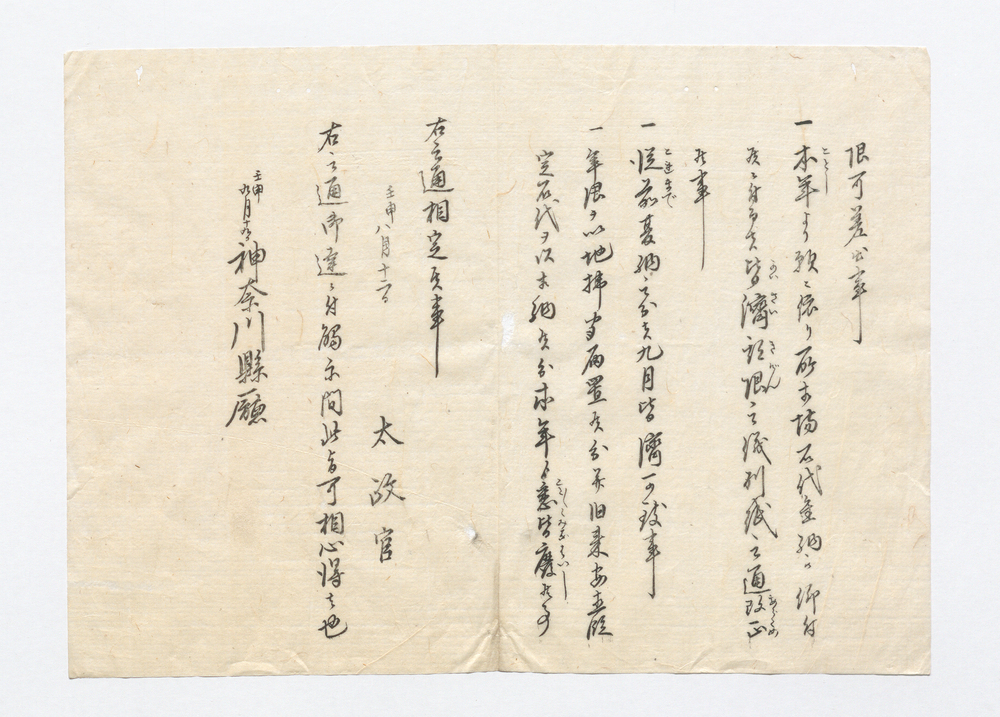 限可差出事
一本年より願ニ依り所市場石代金納被仰付
候ニ付而者皆済期限之儀別紙之通改正
候事
一従前夏納之分者九月皆済可致事
一年限ヲ以地払等届置候分并旧来安直段
定石代ヲ以本納候分本年ゟ悉皆廃候事
右之通相定候事
壬申八月十二日
太政官
右之通御達ニ付觸示間此旨可相心得もの也
壬申九月十九日
神奈川縣廳